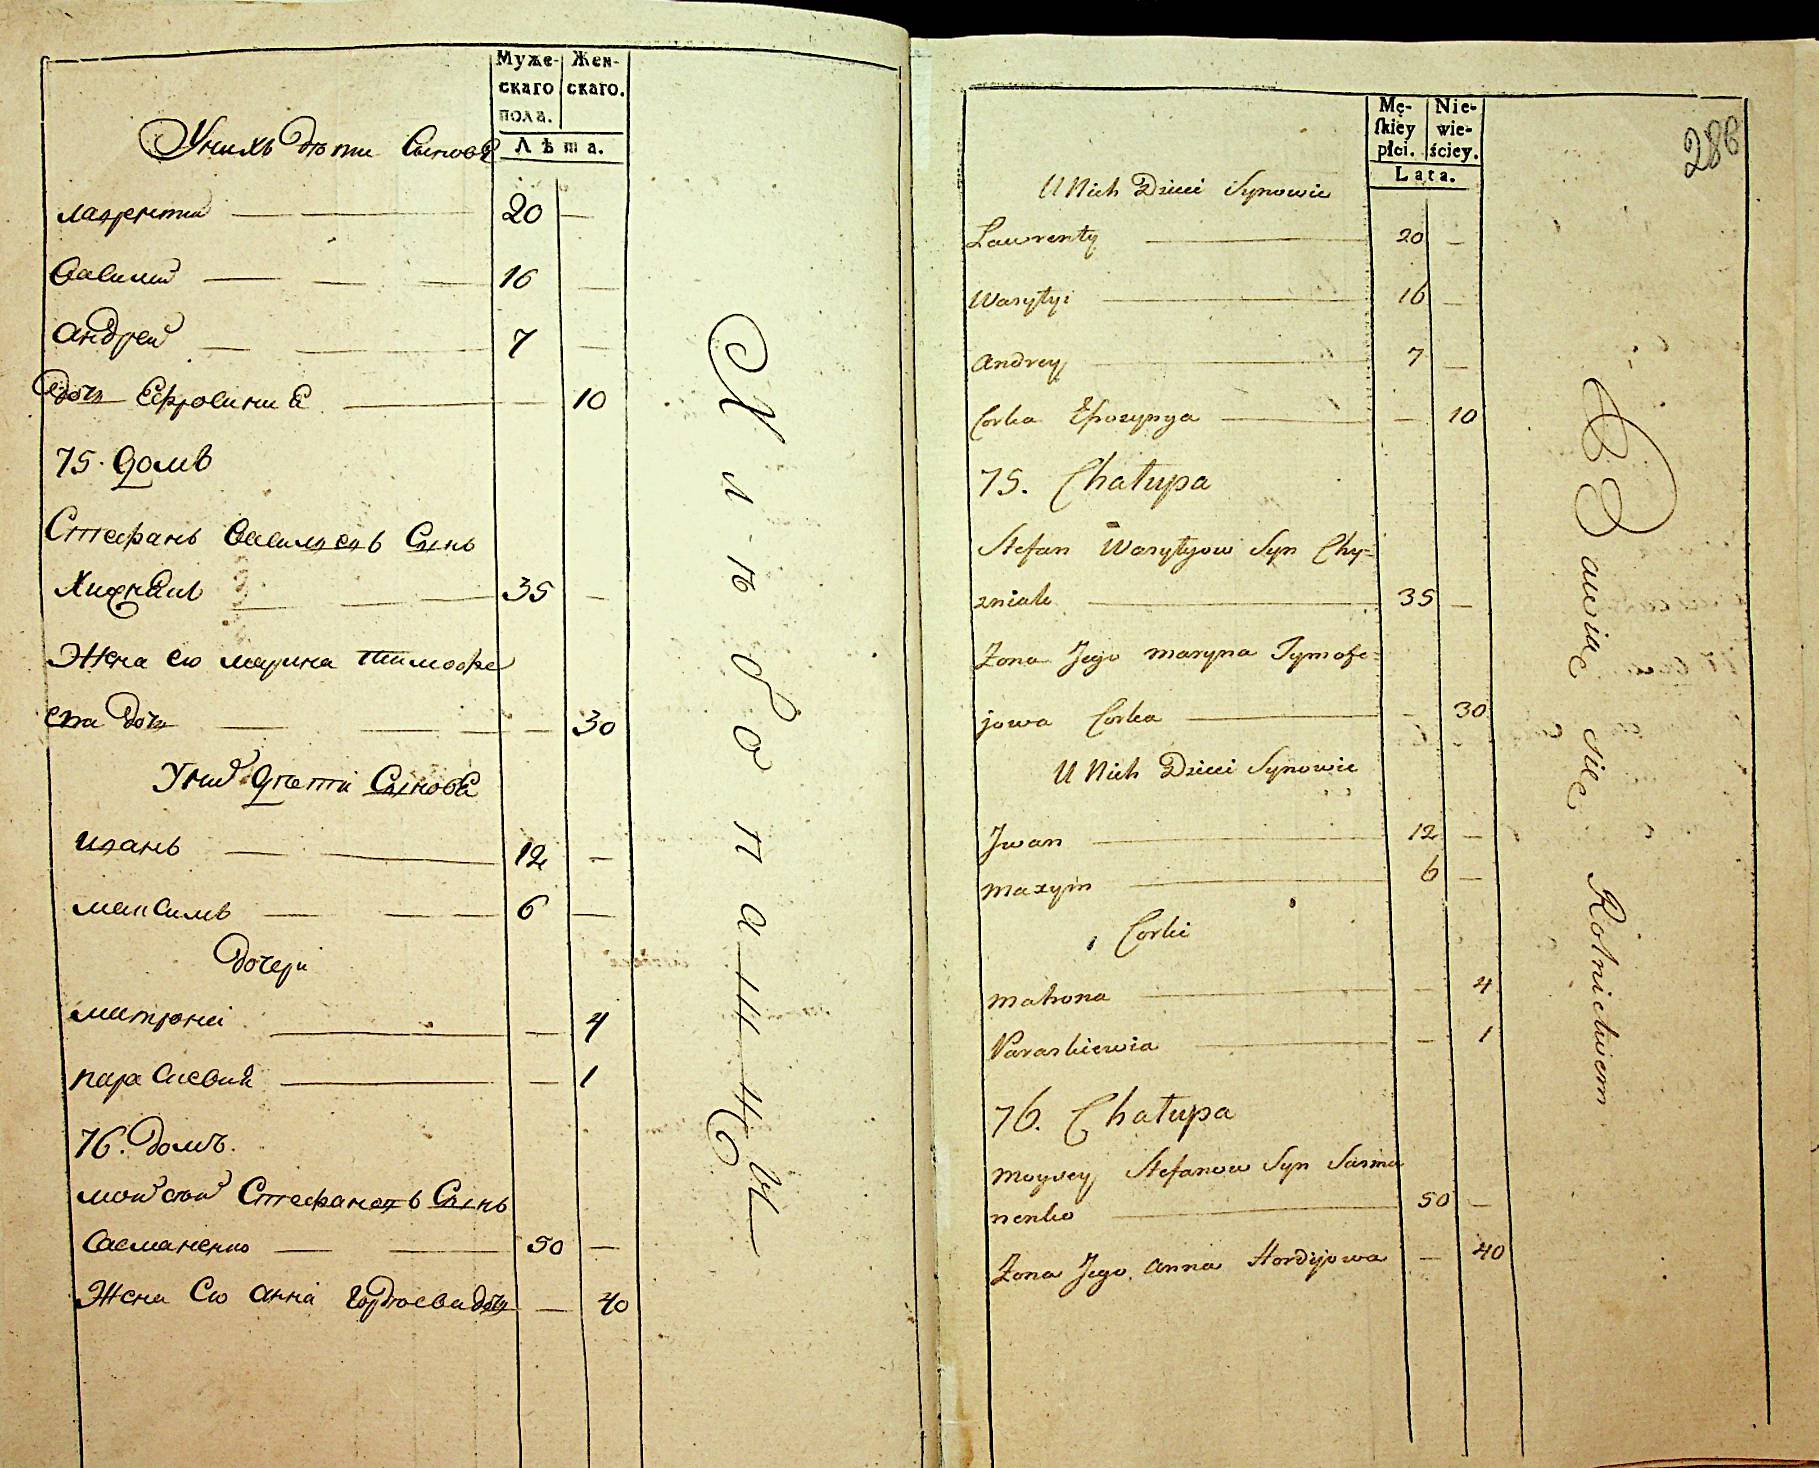 Муже- Жен-
скаго скаго.
пола.
Лѣта.
У нихъ дѣти Сыновя
Лаврентий 20 —
Василий 16 —
Андрей 7 —
дочь Ефросиния — 10
75. домъ
Стефанъ Васильевъ Сынъ
Хижнякъ 35 —
Жена его Марина Тимофе
ева дочь — 30
У них дѣти Сыновя
Иванъ 12 —
Максимъ 6 —
дочери
Матрона — 4
Параскевия — 1
76. домъ.
Мойсей Стефановъ Сынъ
Сасманенко 50 —
Жена Его Анна Гордѣева дочь — 40
Хлѣбопашцы
286
Mę- Nie-
skiéy wie-
płci. ściey.
Lata.
U Nich Dzieci Synowie
Lawrenty 20 —
Wasyłyi 16 —
Andrey 7 —
Corka Efrozynya — 10
75. Chałupa
Stefan Wasyłyow Syn Chy=
zniak 35 —
Zona Jego Maryna Tymofe=
jowa Corka — 30
U Nich Dzieci Synowie
Jwan 12 —
Maxym 6 —
Corki
Matrona — 4
Paraskiewia — 1
76. Chałupa
Moysey Stefanow Syn Sasma
nenko 50 —
Zona Jego Anna Hordijowa — 40
Bawiąc się Rolnictwem